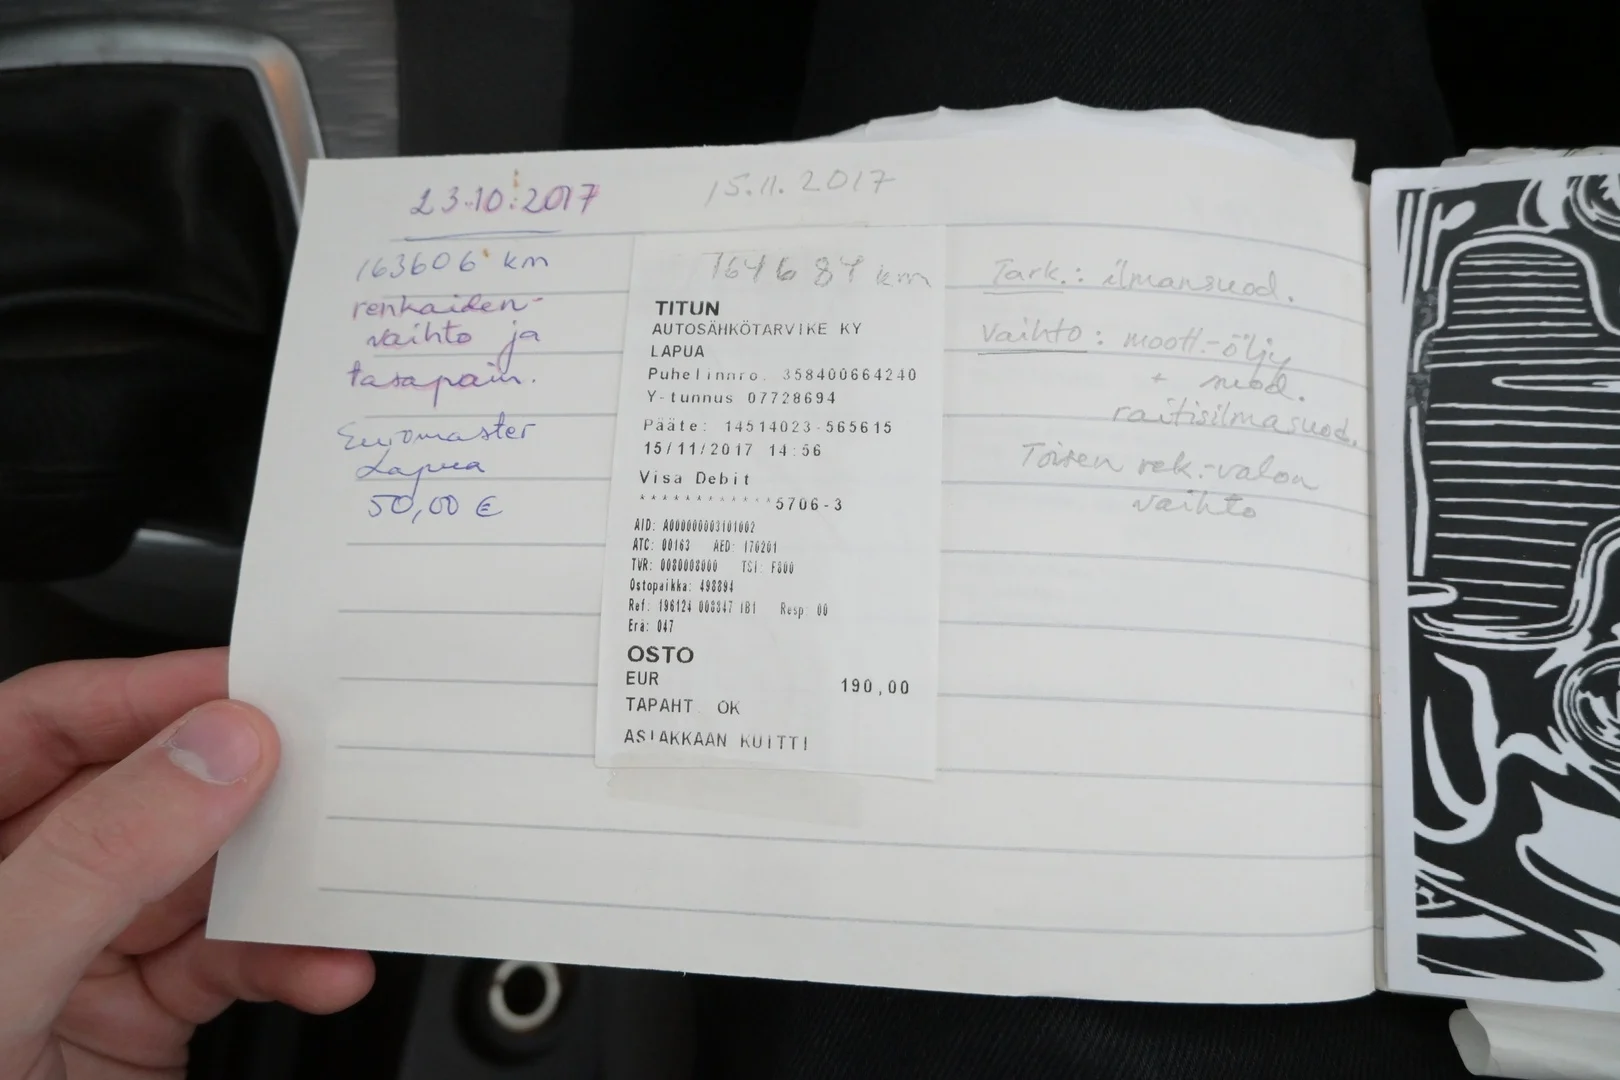 23.10.2017
163606 km
renkaiden-
vaihto ja
tasapain.
Euromaster
Lapua
50,00 €
15.11.2017
164687 km
TITUN
AUTOSÄHKÖTARVIKE KY
LAPUA
Puhelinnro. 358400664240
Y-tunnus 07728694
Pääte: 14514023-565615
15/11/2017 14:56
Visa Debit
************5706-3
AID: A000000003101002
ATC: 00163 AED: 170201
TVR: 0080008000 TSI: F800
Ostopaikka: 498894
Ref: 196124 008847 IB1 Resp: 00
Erä: 047
OSTO
EUR 190,00
TAPAHT. OK
ASIAKKAAN KUITTI
Tark.: ilmansuod.
Vaihto: moott.-öljy
+ suod.
raitisilmasuod.
Toisen rek.-valon
vaihto